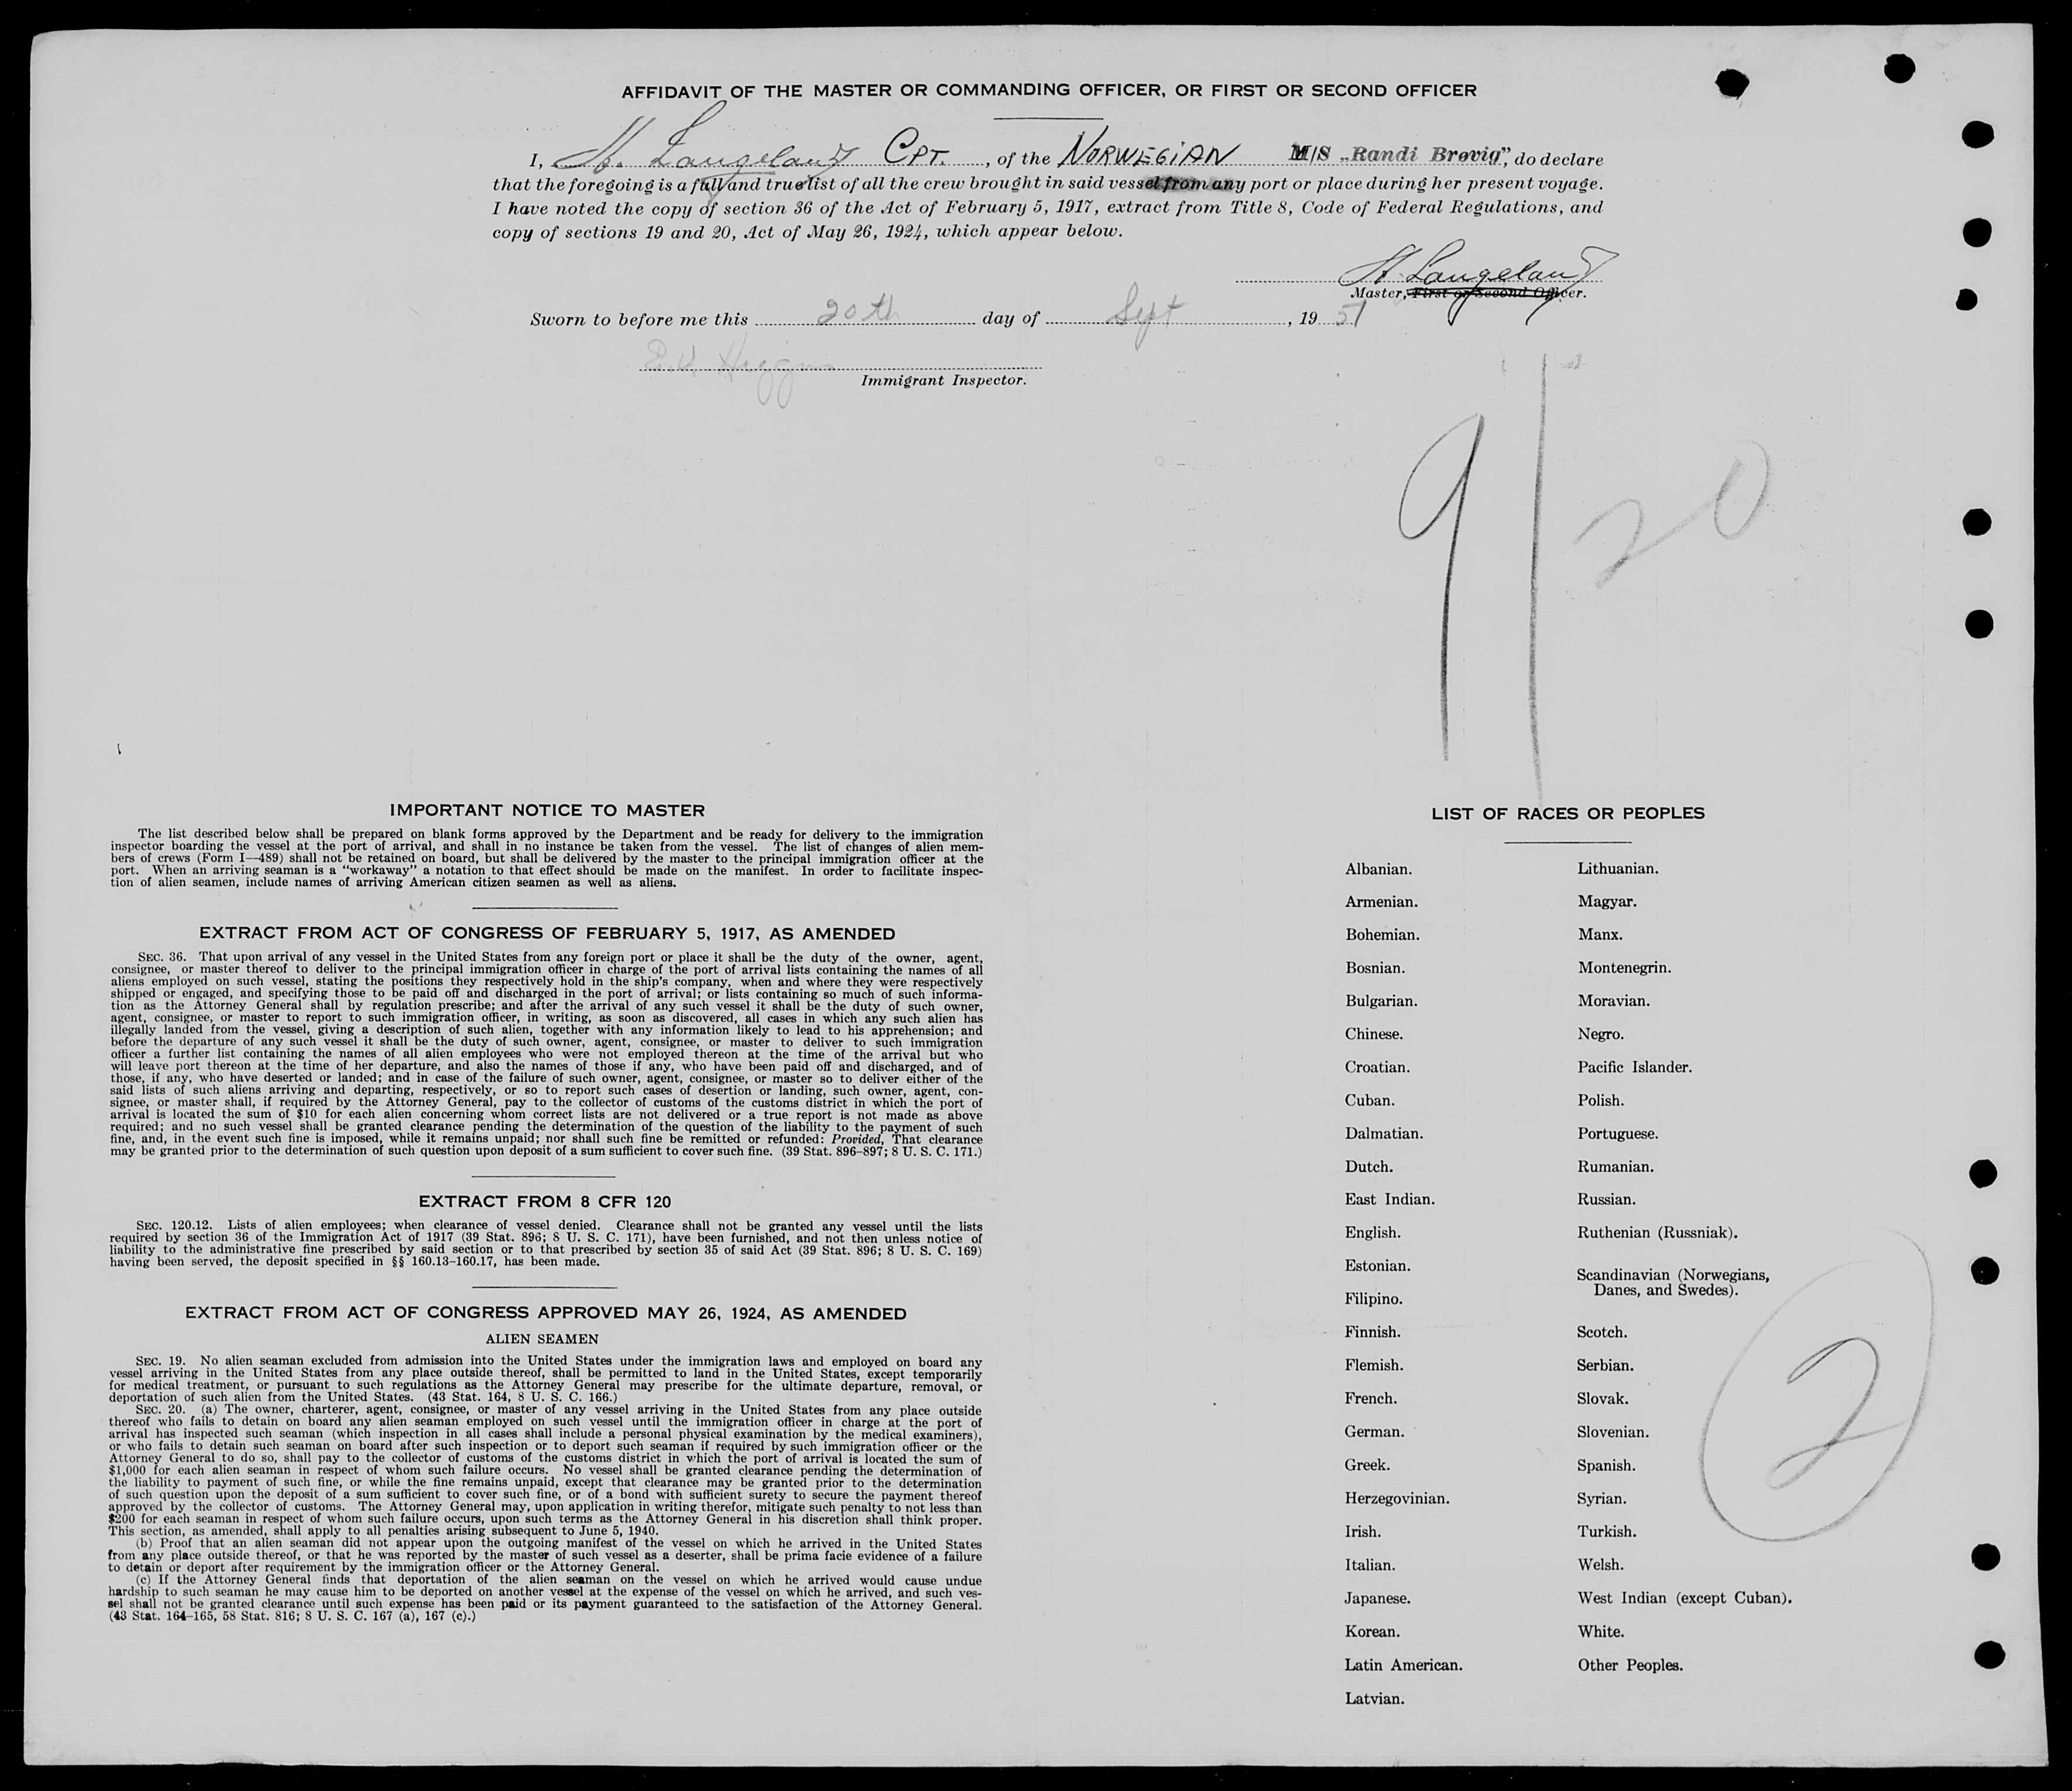 AFFIDAVIT OF THE MASTER OR COMMANDING OFFICER, OR FIRST OR SECOND OFFICER
I, H. Langeland CPT. , of the NORWEGIAN M/S „Randi Brøvig”, do declare
that the foregoing is a full and true list of all the crew brought in said vessel from any port or place during her present voyage.
I have noted the copy of section 36 of the Act of February 5, 1917, extract from Title 8, Code of Federal Regulations, and
copy of sections 19 and 20, Act of May 26, 1924, which appear below.
H. Langeland
Master, First or Second Officer.
Sworn to before me this 20th day of Sept , 19 51
Immigrant Inspector.
9/20
IMPORTANT NOTICE TO MASTER
The list described below shall be prepared on blank forms approved by the Department and be ready for delivery to the immigration
inspector boarding the vessel at the port of arrival, and shall in no instance be taken from the vessel. The list of changes of alien mem-
bers of crews (Form I—489) shall not be retained on board, but shall be delivered by the master to the principal immigration officer at the
port. When an arriving seaman is a “workaway” a notation to that effect should be made on the manifest. In order to facilitate inspec-
tion of alien seamen, include names of arriving American citizen seamen as well as aliens.
EXTRACT FROM ACT OF CONGRESS OF FEBRUARY 5, 1917, AS AMENDED
SEC. 36. That upon arrival of any vessel in the United States from any foreign port or place it shall be the duty of the owner, agent,
consignee, or master thereof to deliver to the principal immigration officer in charge of the port of arrival lists containing the names of all
aliens employed on such vessel, stating the positions they respectively hold in the ship's company, when and where they were respectively
shipped or engaged, and specifying those to be paid off and discharged in the port of arrival; or lists containing so much of such informa-
tion as the Attorney General shall by regulation prescribe; and after the arrival of any such vessel it shall be the duty of such owner,
agent, consignee, or master to report to such immigration officer, in writing, as soon as discovered, all cases in which any such alien has
illegally landed from the vessel, giving a description of such alien, together with any information likely to lead to his apprehension; and
before the departure of any such vessel it shall be the duty of such owner, agent, consignee, or master to deliver to such immigration
officer a further list containing the names of all alien employees who were not employed thereon at the time of the arrival but who
will leave port thereon at the time of her departure, and also the names of those if any, who have been paid off and discharged, and of
those, if any, who have deserted or landed; and in case of the failure of such owner, agent, consignee, or master so to deliver either of the
said lists of such aliens arriving and departing, respectively, or so to report such cases of desertion or landing, such owner, agent, con-
signee, or master shall, if required by the Attorney General, pay to the collector of customs of the customs district in which the port of
arrival is located the sum of $10 for each alien concerning whom correct lists are not delivered or a true report is not made as above
required; and no such vessel shall be granted clearance pending the determination of the question of the liability to the payment of such
fine, and, in the event such fine is imposed, while it remains unpaid; nor shall such fine be remitted or refunded: Provided, That clearance
may be granted prior to the determination of such question upon deposit of a sum sufficient to cover such fine. (39 Stat. 896–897; 8 U. S. C. 171.)
EXTRACT FROM 8 CFR 120
SEC. 120.12. Lists of alien employees; when clearance of vessel denied. Clearance shall not be granted any vessel until the lists
required by section 36 of the Immigration Act of 1917 (39 Stat. 896; 8 U. S. C. 171), have been furnished, and not then unless notice of
liability to the administrative fine prescribed by said section or to that prescribed by section 35 of said Act (39 Stat. 896; 8 U. S. C. 169)
having been served, the deposit specified in §§ 160.13–160.17, has been made.
EXTRACT FROM ACT OF CONGRESS APPROVED MAY 26, 1924, AS AMENDED
ALIEN SEAMEN
SEC. 19. No alien seaman excluded from admission into the United States under the immigration laws and employed on board any
vessel arriving in the United States from any place outside thereof, shall be permitted to land in the United States, except temporarily
for medical treatment, or pursuant to such regulations as the Attorney General may prescribe for the ultimate departure, removal, or
deportation of such alien from the United States. (43 Stat. 164, 8 U. S. C. 166.)
SEC. 20. (a) The owner, charterer, agent, consignee, or master of any vessel arriving in the United States from any place outside
thereof who fails to detain on board any alien seaman employed on such vessel until the immigration officer in charge at the port of
arrival has inspected such seaman (which inspection in all cases shall include a personal physical examination by the medical examiners),
or who fails to detain such seaman on board after such inspection or to deport such seaman if required by such immigration officer or the
Attorney General to do so, shall pay to the collector of customs of the customs district in which the port of arrival is located the sum of
$1,000 for each alien seaman in respect of whom such failure occurs. No vessel shall be granted clearance pending the determination of
the liability to payment of such fine, or while the fine remains unpaid, except that clearance may be granted prior to the determination
of such question upon the deposit of a sum sufficient to cover such fine, or of a bond with sufficient surety to secure the payment thereof
approved by the collector of customs. The Attorney General may, upon application in writing therefor, mitigate such penalty to not less than
$200 for each seaman in respect of whom such failure occurs, upon such terms as the Attorney General in his discretion shall think proper.
This section, as amended, shall apply to all penalties arising subsequent to June 5, 1940.
(b) Proof that an alien seaman did not appear upon the outgoing manifest of the vessel on which he arrived in the United States
from any place outside thereof, or that he was reported by the master of such vessel as a deserter, shall be prima facie evidence of a failure
to detain or deport after requirement by the immigration officer or the Attorney General.
(c) If the Attorney General finds that deportation of the alien seaman on the vessel on which he arrived would cause undue
hardship to such seaman he may cause him to be deported on another vessel at the expense of the vessel on which he arrived, and such ves-
sel shall not be granted clearance until such expense has been paid or its payment guaranteed to the satisfaction of the Attorney General.
(43 Stat. 164–165, 58 Stat. 816; 8 U. S. C. 167 (a), 167 (c).)
LIST OF RACES OR PEOPLES
Albanian.
Armenian.
Bohemian.
Bosnian.
Bulgarian.
Chinese.
Croatian.
Cuban.
Dalmatian.
Dutch.
East Indian.
English.
Estonian.
Filipino.
Finnish.
Flemish.
French.
German.
Greek.
Herzegovinian.
Irish.
Italian.
Japanese.
Korean.
Latin American.
Latvian.
Lithuanian.
Magyar.
Manx.
Montenegrin.
Moravian.
Negro.
Pacific Islander.
Polish.
Portuguese.
Rumanian.
Russian.
Ruthenian (Russniak).
Scandinavian (Norwegians,
Danes, and Swedes).
Scotch.
Serbian.
Slovak.
Slovenian.
Spanish.
Syrian.
Turkish.
Welsh.
West Indian (except Cuban).
White.
Other Peoples.
2